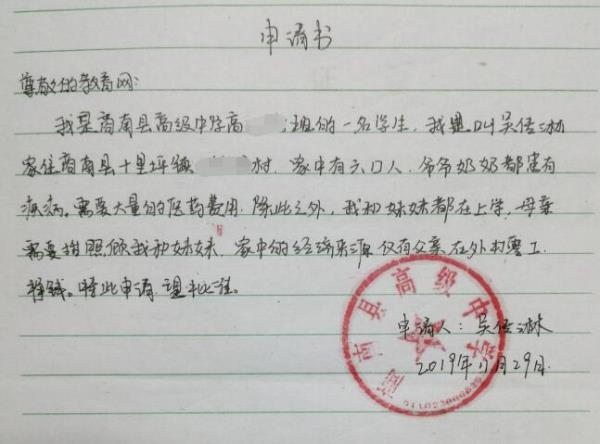 申请书
尊敬的教育网:
我是商南县高级中学高 班的一名学生,我叫吴
家住商南县十里坪镇 村,家中有六口人,爷爷奶奶都患有
疾病。需要大量的医药费用,除此之外,我和妹妹都在上学,母亲
需要照顾我和妹妹,家中的经济来源仅有父亲在外打零工
挣钱。特此申请,望批准。
申请人:吴
2019年11月29日
商南县高级中学